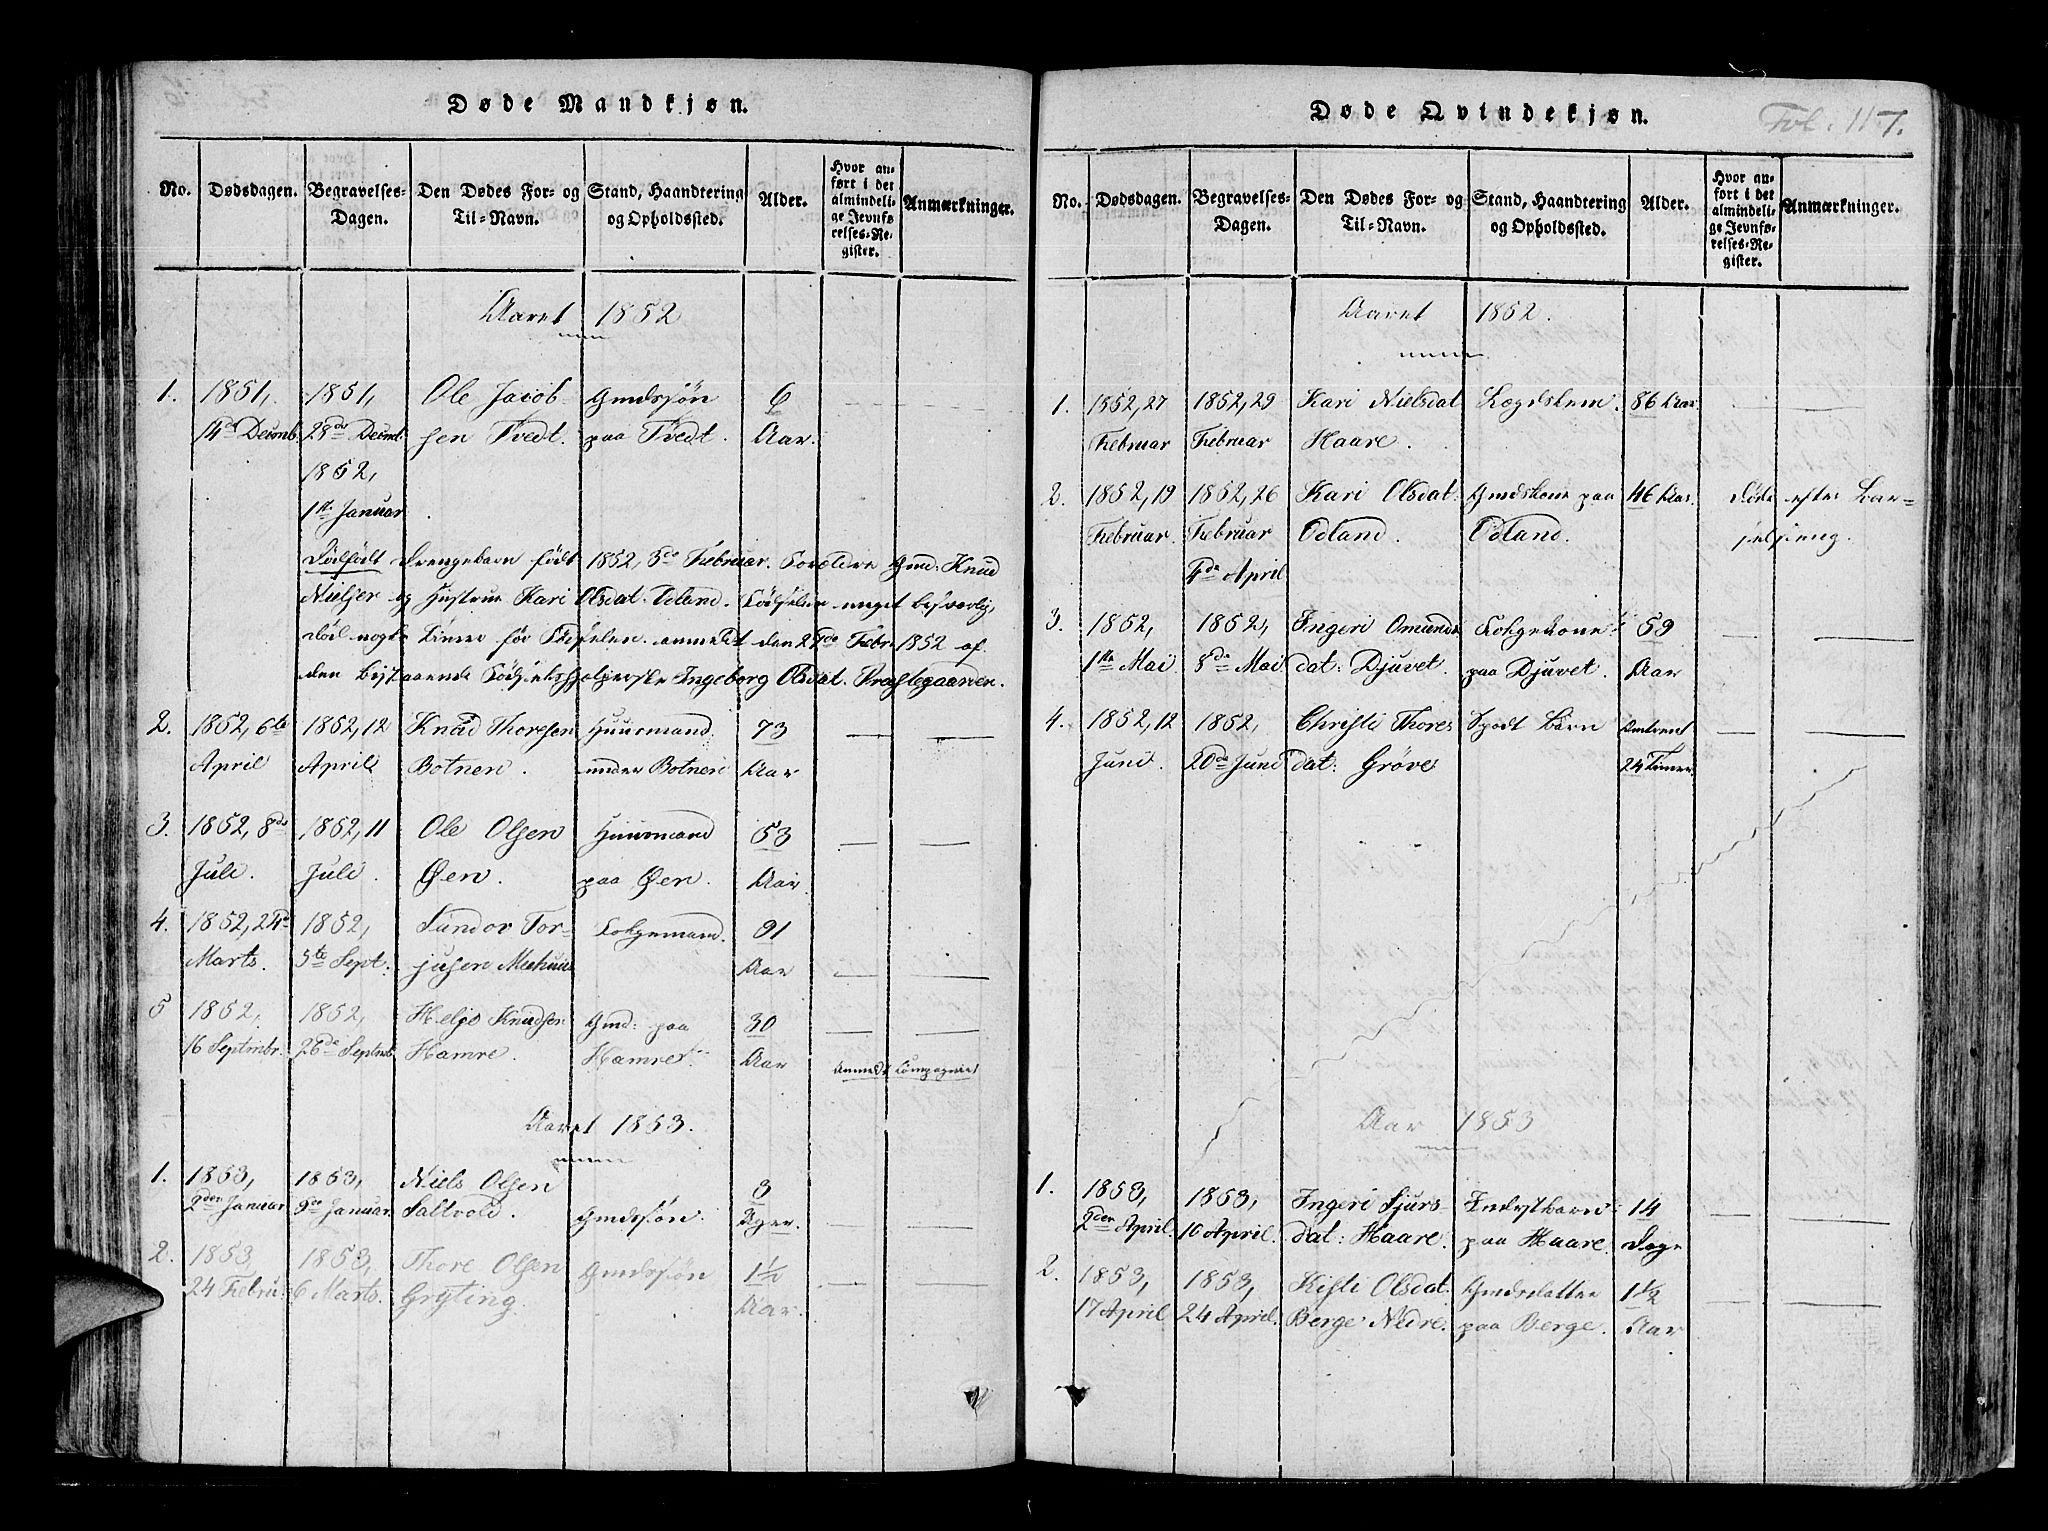 Døde Mandkjøn.
No. Dødsdagen. Begravelses-Dagen. Den Dødes For- og Til-Navn. Stand, Haandtering og Opholdssted. Alder. Hvor anført i det almindelige Jevnførelses-Register. Anmærkninger.
Aaret 1852
1. 1851, 1851, Ole Jacob- Gmdssøn 6
14de Decmb. 28de Decmb. sen Tvedt. paa Tvedt. Aar.
1852,
1ste Januar.
Dødfødt Drengebarn født 1852, 3de Februar. Forældre Gmd: Knud
Nielsen og Hustrue Kari Olsdat. Odland. Fødselen meget besværlig,
død nogle Timer før Fødselen. anmeldt den 24de Febr. 1852 af
den bistaaende Fødselshjelperske Ingeborg Olsdat. Præstegaarden.
2. 1852, 6te 1852, 12 Knud Thoresen Huusmand 73
April April Botnen. under Botnen Aar
3. 1852, 8de 1852, 11 Ole Olsen Huusmand 53
Juli. Juli. Øen. paa Øen. Aar.
4. 1852, 24de 1852, Sündor Tor- Folgemand. 91
Marts. 5te Sept: jusen Aar
5 1852, 1852, Helje Knudsen Gmd: paa 30
16 Septmbr. 26de Septmb. Hamre. Hamre. Aar
Anmeldt Compagniet
Aaret 1853.
1. 1853, 1853, Niels Olsen 3
2den Januar. 9de Januar. Saltvold. Gmdssøn. Uger.
2. 1853, 1853, Thore Olsen Gmdssøn 1½
24 Febru. 6 Marts. Gryting. Aar.
Døde Qvindekjøn. Fol. 117.
No. Dødsdagen. Begravelses-Dagen. Den Dødes For- og Til-Navn. Stand, Haandtering og Opholdssted. Alder. Hvor anført i det almindelige Jevnførelses-Register. Anmærkninger.
Aaret 1852.
1. 1852, 27 1852, 29 Kari Nielsdat Lægdslem. 86 Aar.
Februar Februar Haare.
2. 1852, 19 1852, 26 Kari Olsdat: Gmdskone paa 46 Aar. Døde efter Bar-
Februar. Februar Odland. Odland. selseng.
4de April
3. 1852, 1852, Ingeri Omunds Folgekone 59
1ste Mai 8de Mai dat: Djuvet. paa Djuvet. Aar
4. 1852, 12 1852, Christi Thores Spædt Barn Omtrent
Juni. 20de Juni dat: Grøve 24 Timer.
Aar 1853
1. 1853, 1853, Ingeri Sjurs- Inderstbarn 14
2den April. 10 April. dat: Haare. paa Haare. Dage
2. 1853, 1853, Kisti Olsdat: Gmdsdatter 1½
17 April 24 April. Berge Nedre. paa Berge. Aar